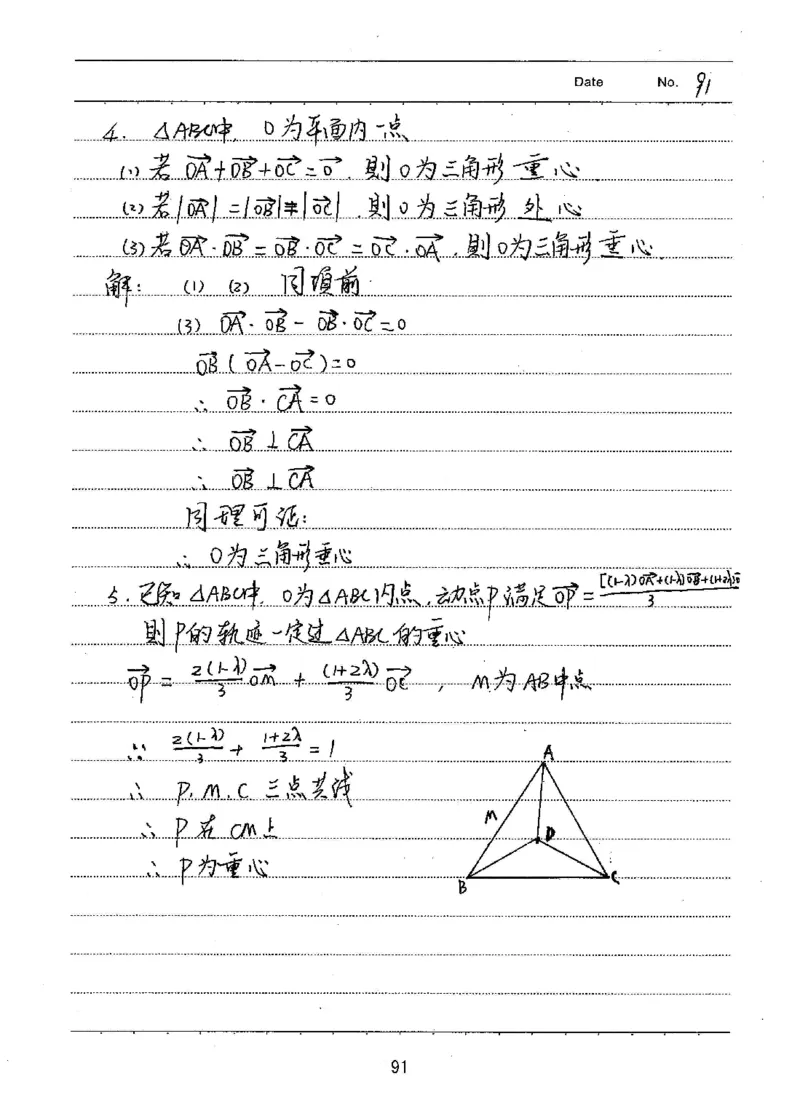 Date No. 91
4. △ABC中, O为平面内一点
(1) 若 $\overrightarrow{OA}+\overrightarrow{OB}+\overrightarrow{OC}=\overrightarrow{0}$, 则O为三角形 重心
(2) 若 $|\overrightarrow{OA}|=|\overrightarrow{OB}|=|\overrightarrow{OC}|$, 则O为三角形 外心
(3) 若 $\overrightarrow{OA}\cdot\overrightarrow{OB}=\overrightarrow{OB}\cdot\overrightarrow{OC}=\overrightarrow{OC}\cdot\overrightarrow{OA}$, 则O为三角形垂心.
解: (1) (2) 同
(3) $\overrightarrow{OA}\cdot\overrightarrow{OB}-\overrightarrow{OB}\cdot\overrightarrow{OC}=0$
$\overrightarrow{OB}(\overrightarrow{OA}-\overrightarrow{OC})=0$
∴ $\overrightarrow{OB}\cdot\overrightarrow{CA}=0$
∴ $\overrightarrow{OB}\perp\overrightarrow{CA}$
∴ $\overrightarrow{OB}\perp\overrightarrow{CA}$
同理可证:
∴ O为三角形垂心
5. 已知△ABC中, O为△ABC内点, 动点P满足 $\overrightarrow{OP}=\frac{[(1-\lambda)\overrightarrow{OA}+(1-\lambda)\overrightarrow{OB}+(1+2\lambda)\overrightarrow{O}}{3}$
则P的轨迹一定过△ABC的重心
$\overrightarrow{OP}=\frac{2(1-\lambda)}{3}\overrightarrow{OM}+\frac{(1+2\lambda)}{3}\overrightarrow{OC}$, M为AB中点
∵ $\frac{2(1-\lambda)}{3}+\frac{1+2\lambda}{3}=1$
∴ P, M, C 三点共线
∴ P在CM上
∴ P为重心
A
M
D
B
C
91